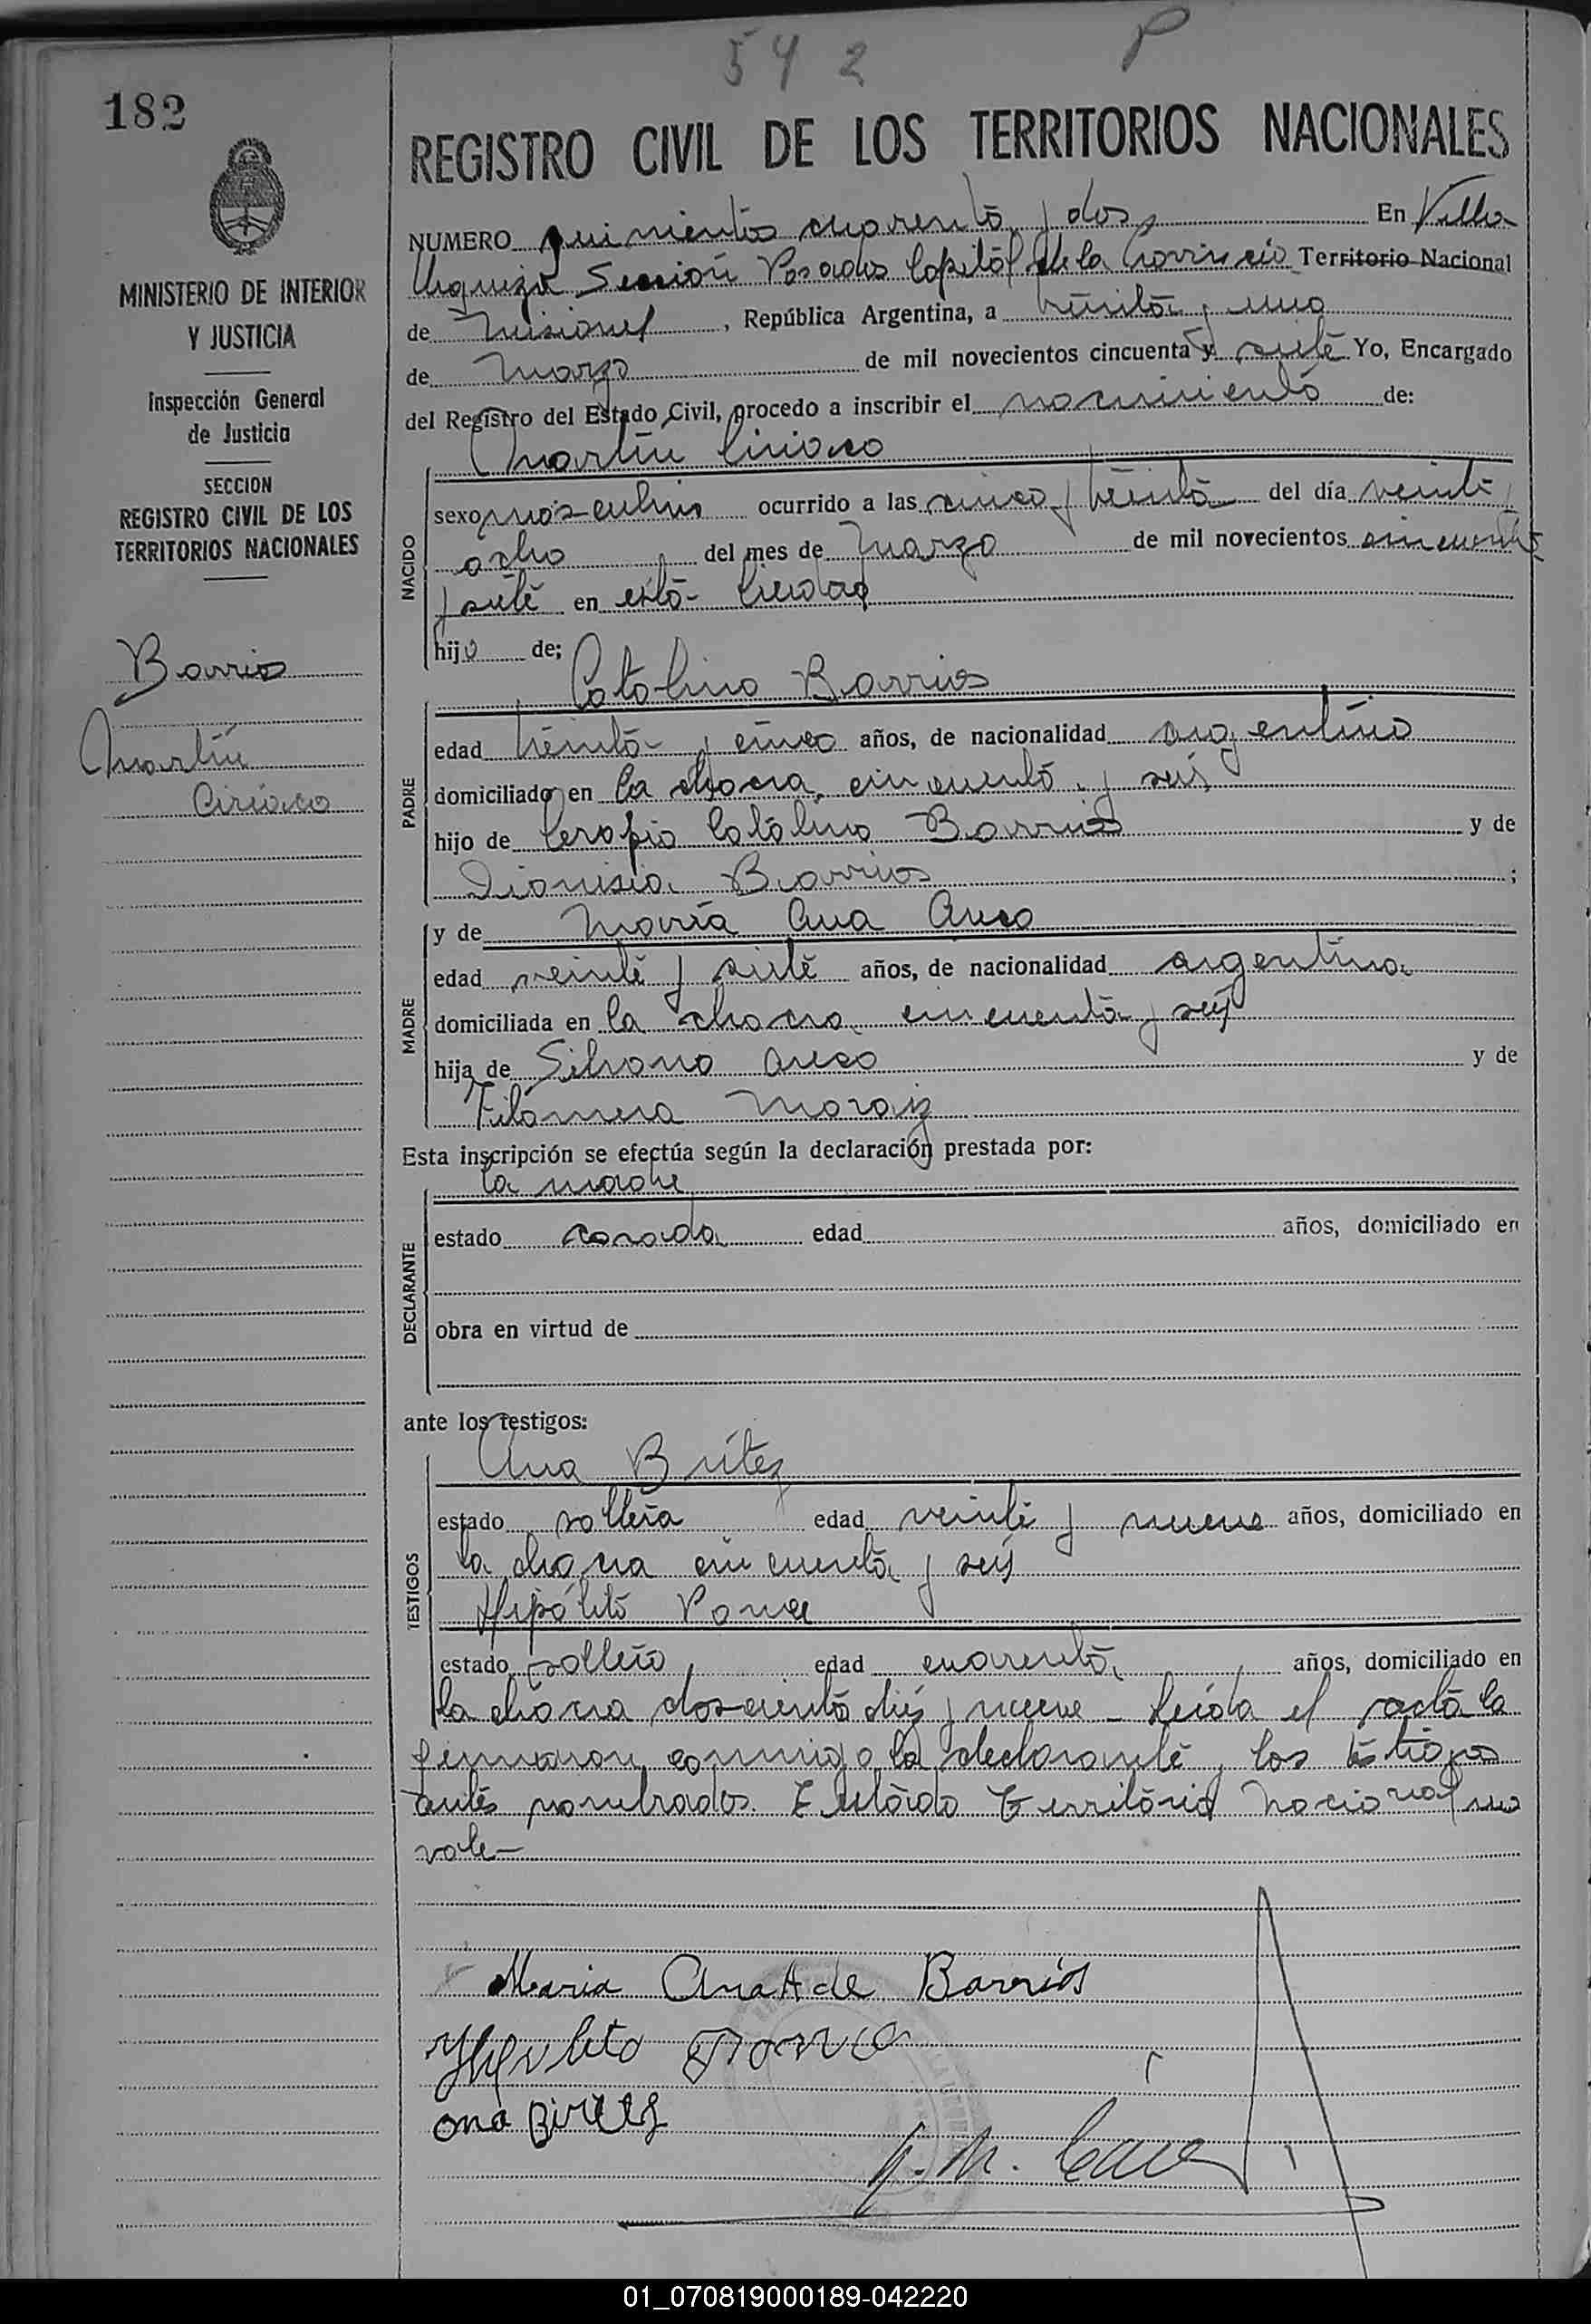 542 P
182
MINISTERIO DE INTERIOR
Y JUSTICIA
Inspección General
de Justicia
SECCION
REGISTRO CIVIL DE LOS
TERRITORIOS NACIONALES
Barrios
Martín
Ciriaco
REGISTRO CIVIL DE LOS TERRITORIOS NACIONALES
NUMERO quinientos cuarenta y dos, En Villa
Urquiza Sección Posadas Capital de la Provincia Territorio Nacional
de Misiones, República Argentina, a treinta y uno
de Marzo de mil novecientos cincuenta y siete Yo, Encargado
del Registro del Estado Civil, procedo a inscribir el nacimiento de:
Martín Ciriaco
NACIDO
sexo masculino ocurrido a las cinco y treinta del día veinti
ocho del mes de Marzo de mil novecientos cincuenta
y siete en esta Ciudad
hijo de;
Catalino Barrios
PADRE
edad treinta y cinco años, de nacionalidad argentino
domiciliado en la chacra cincuenta y seis
hijo de Serapio Catalino Barrios y de
Dionisia Barrios ;
y de María Ana
MADRE
edad veinte y siete años, de nacionalidad argentina
domiciliada en la chacra cincuenta y seis
hija de Silvano y de
Filomena Moraiz
Esta inscripción se efectúa según la declaración prestada por:
la madre
DECLARANTE
estado casada edad años, domiciliado en
obra en virtud de
ante los testigos:
Ana Britez
TESTIGOS
estado soltera edad veinte y nueve años, domiciliado en
la chacra cincuenta y seis
Hipólito
estado soltero, edad cuarenta, años, domiciliado en
la chacra doscienta diez y nueve - Leída el acta la
firmaron conmigo la declarante y los testigos
antes nombrados. E Entado Territorio Nacional no
vale-
Maria Ana A de Barrios